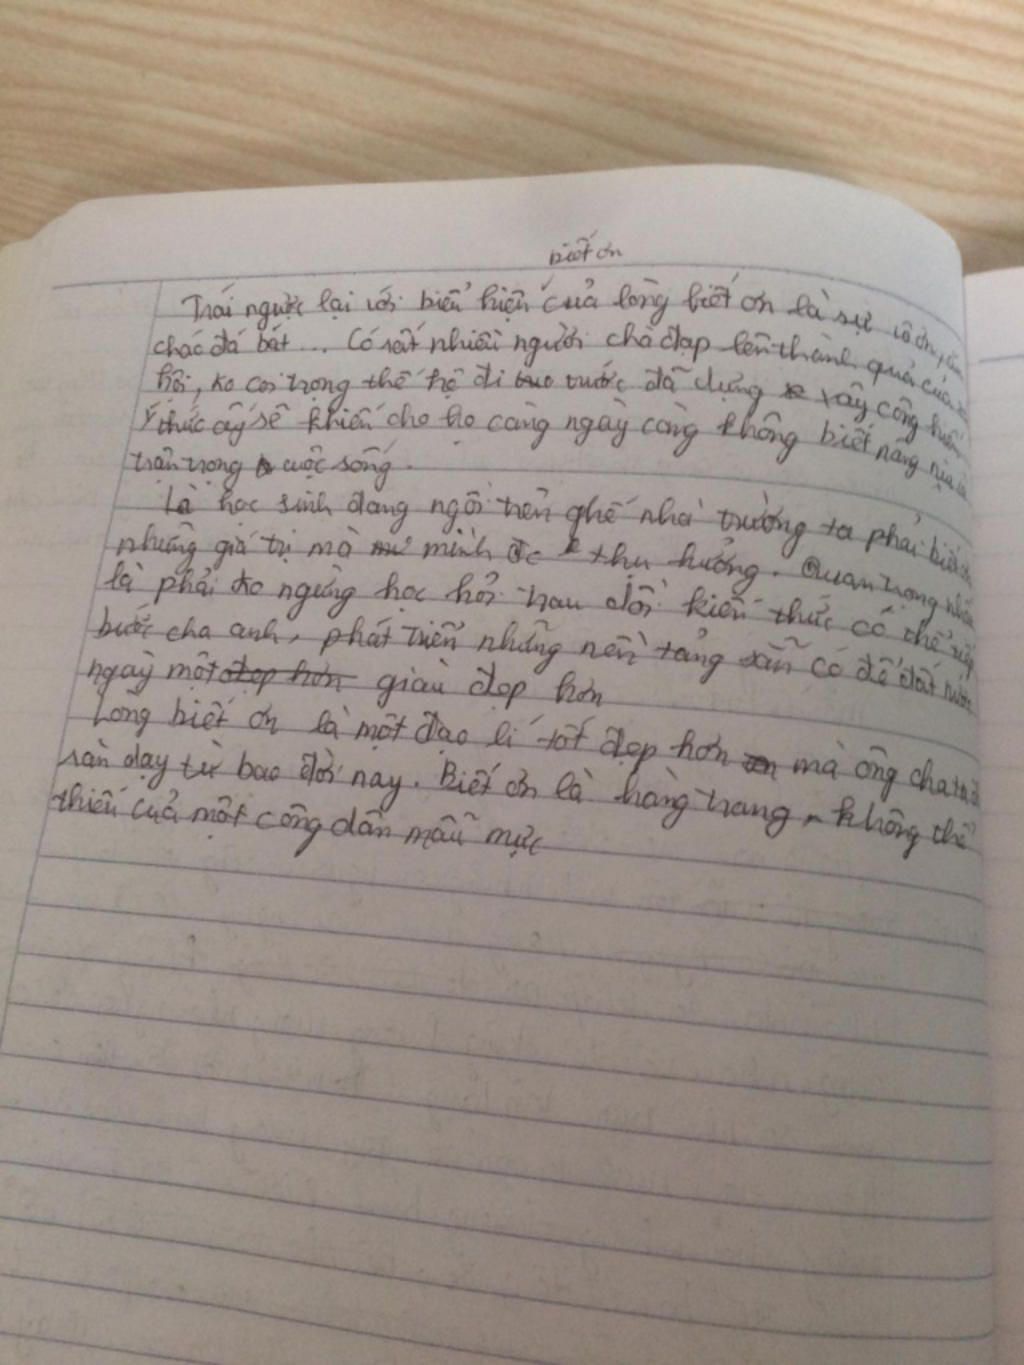 biết ơn
Trái ngược lại với biểu hiện của lòng biết ơn là sự vô ơn, ăn
cháo đá bát... Có rất nhiều người chà đạp lên thành quả của xã
hội, ko coi trọng thế hệ đi trước đã dựng xây cống hiến
Ý thức ấy sẽ khiến cho họ càng ngày càng không biết nâng niu và
trận trọng cuộc sống.
Là học sinh đang ngồi trên ghế nhà trường ta phải biết ơn
những giá trị mà mình đc thụ hưởng. Quan trọng nhất
là phải ko ngừng học hỏi trau dồi kiến thức có thể tiếp
bước cha anh, phát triển những nền tảng sẵn có để đất nước
ngày một giàu đẹp hơn
Lòng biết ơn là một đạo lí tốt đẹp hơn mà ông cha ta đã
răn dạy từ bao đời nay. Biết ơn là hàng trang không thể
thiếu của một công dân mẫu mực